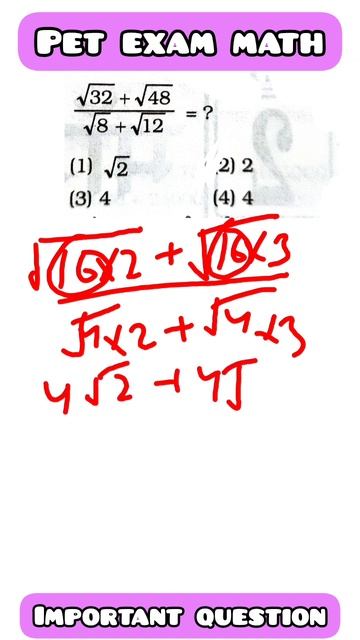 PET EXAM MATH
√32 + √48
√8 + √12
= ?
(1) √2
(2) 2
(3) 4
(4) 4
√16×2 + √16×3
√4×2 + √4×3
4√2 + 4√
IMPORTANT QUESTION